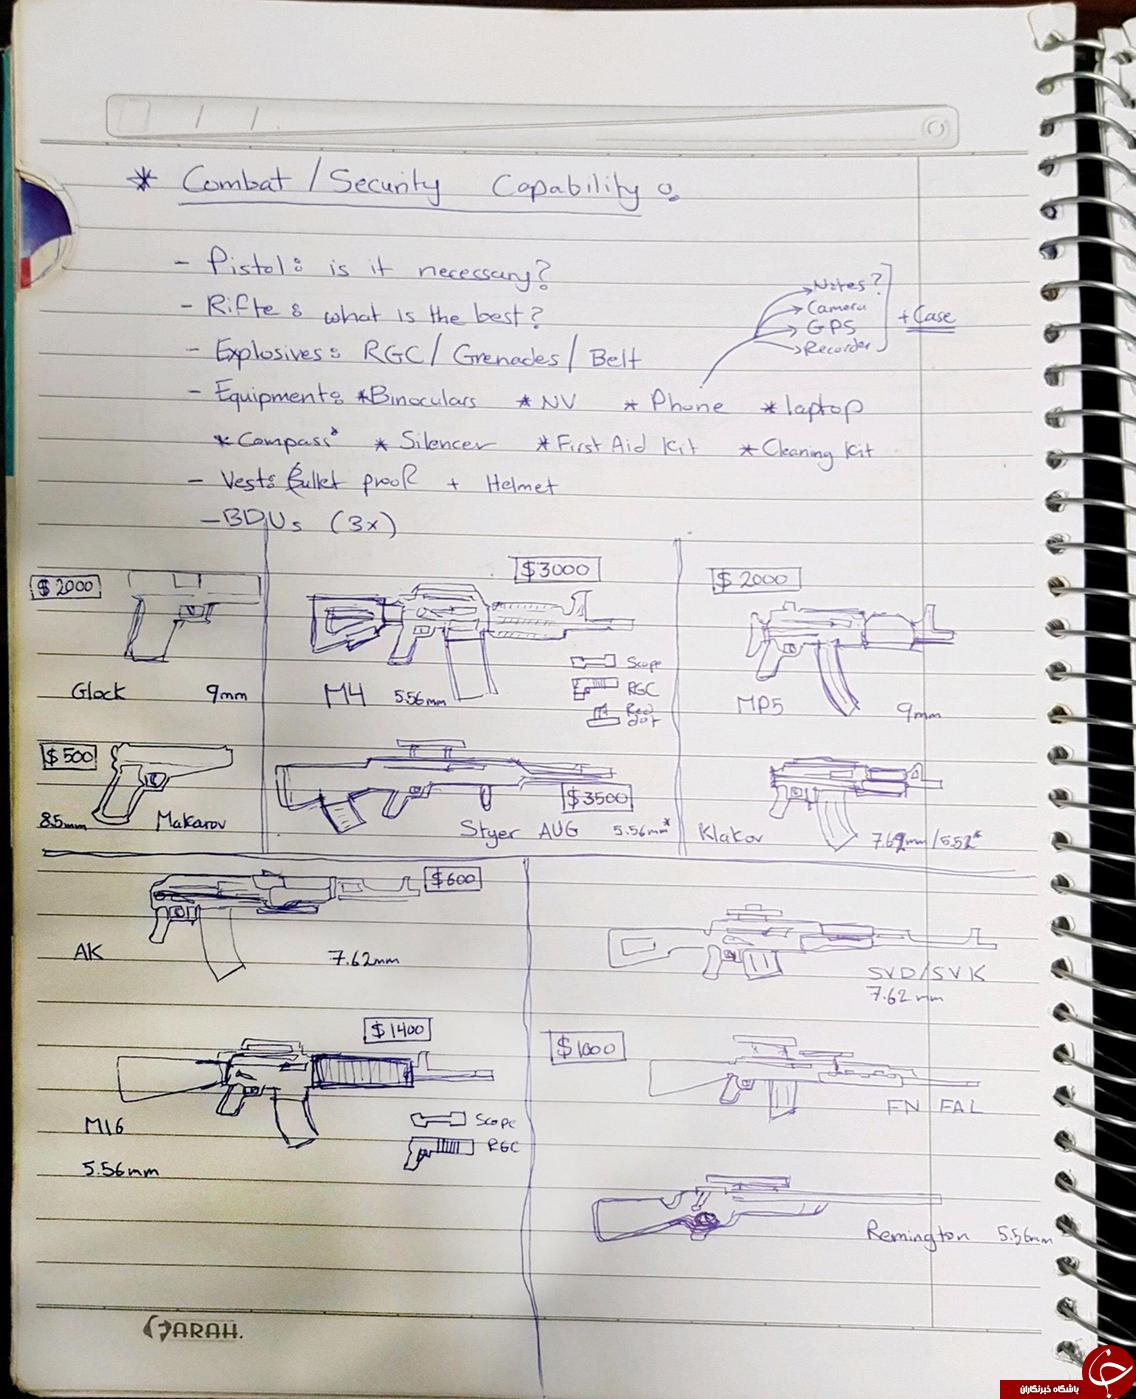 * Combat / Security Capability :
- Pistol : is it necessary?
- Rifte : what is the best?
- Explosives : RGC / Grenades / Belt
Notes?
Camera
GPS
Recorder
+ Case
- Equipment : *Binoculars * NV * Phone * laptop
* Compass* * Silencer * First Aid Kit * Cleaning Kit
- Vest : Bullet proof + Helmet
- BDUs (3x)
$2000
Glock 9mm
$3000
Scope
RGC
Red dot
M4 5.56mm
$2000
MP5 9mm
$500
8.5mm Makarov
$3500
Styer AUG 5.56mm*
Klakov 7.62mm/5.52*
$600
AK 7.62mm
SVD/SVK
7.62mm
$1400
M16
Scope
RGC
5.56mm
$1000
FN FAL
Remington 5.56mm
FARAH.
باشگاه خبرنگاران